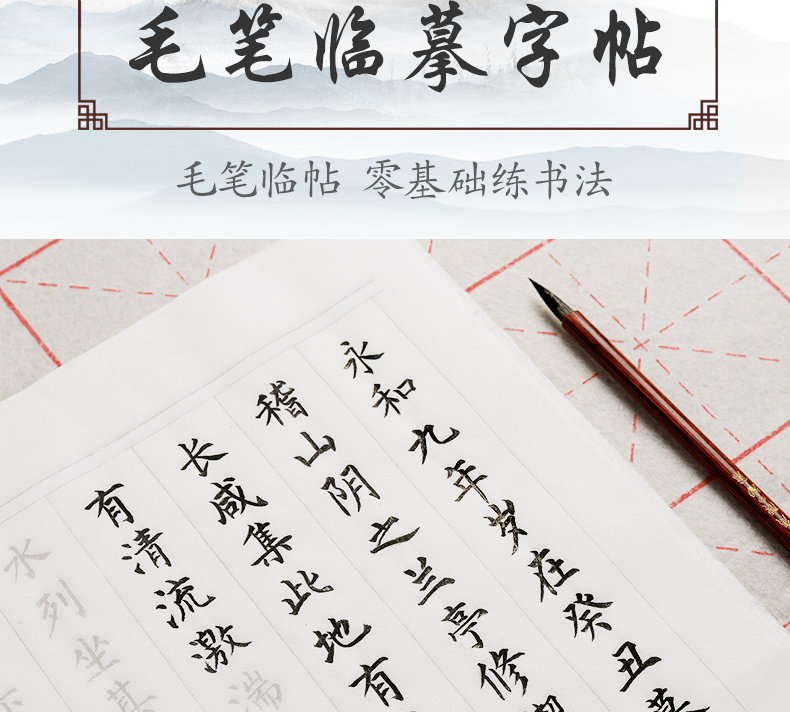 毛笔临摹字帖
毛笔临帖 零基础练书法
永和九年岁在癸丑暮
稽山阴之兰亭修禊
长咸集此地有
有清流激湍
水列坐其